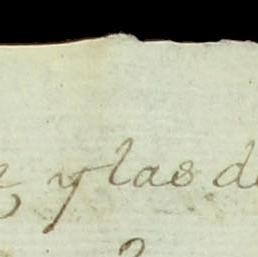 y las de